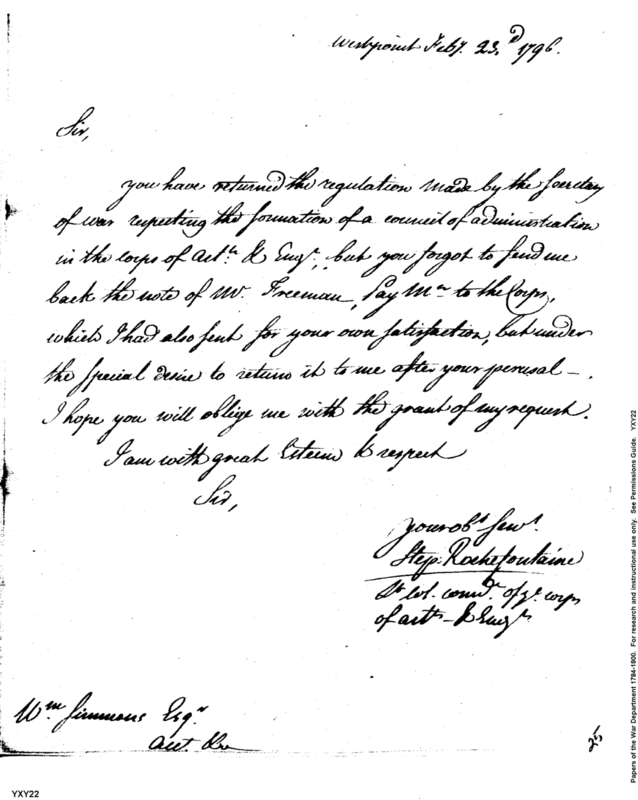 Westpoint Feby. 23d. 1796.
Sir,
you have returned the regulation made by the Secretary
of war respecting the formation of a council of administration
in the corps of Arts. & Engrs., but you forgot to send me
back the note of Mr. Freeman, Pay Mr. to the Corps,
which I had also sent for your own satisfaction, but under
the special desire to return it to me after your perusal —.
I hope you will oblige me with the grant of my request.
I am with great Esteem & respect
Sir,
your obt Servt.
Step. Rochefontaine
Lt col. comdt. of ye. corps
of arts. & Engrs
Wm Simmons Esqr
Acct. &c
Papers of the War Department 1784-1800. For research and instructional use only. See Permissions Guide. YXY22
YXY22